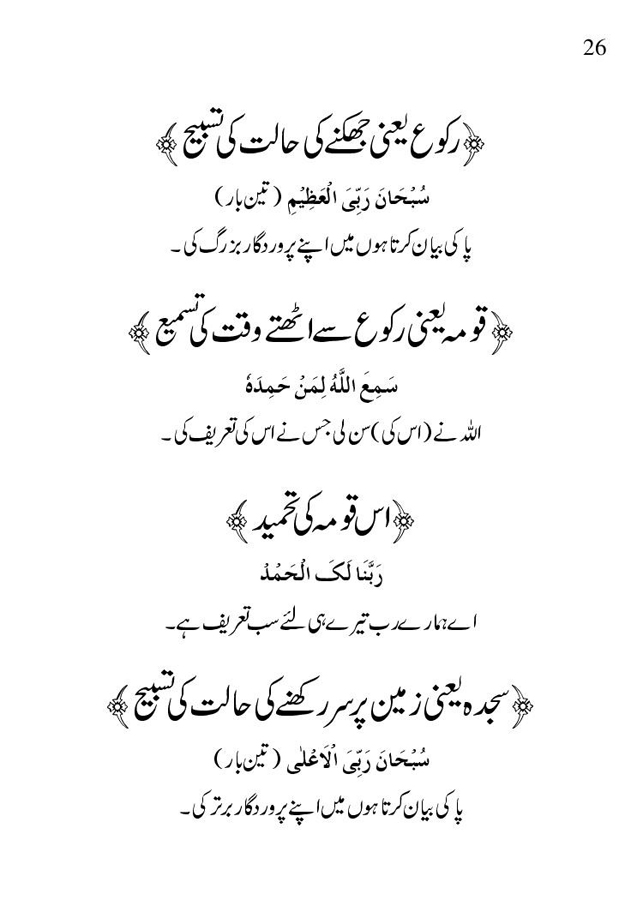 26
﴿رکوع یعنی جھکنے کی حالت کی تسبیح﴾
سُبْحَانَ رَبِّیَ الْعَظِیْمِ (تین بار)
پاکی بیان کرتا ہوں میں اپنے پروردگار بزرگ کی۔
﴿قومہ یعنی رکوع سے اٹھتے وقت کی تسمیع﴾
سَمِعَ اللَّهُ لِمَنْ حَمِدَهٗ
اللہ نے (اس کی) سن لی جس نے اس کی تعریف کی۔
﴿اس قومہ کی تحمید﴾
رَبَّنَا لَکَ الْحَمْدُ
اے ہمارے رب تیرے ہی لئے سب تعریف ہے۔
﴿سجدہ یعنی زمین پر سر رکھنے کی حالت کی تسبیح﴾
سُبْحَانَ رَبِّیَ الْاَعْلٰی (تین بار)
پاکی بیان کرتا ہوں میں اپنے پروردگار برتر کی۔